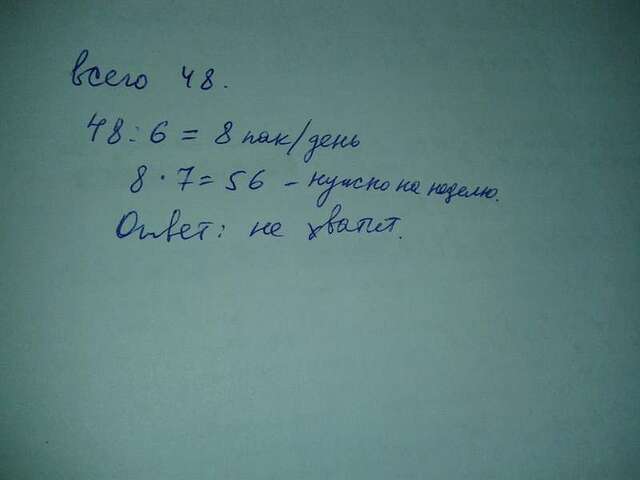 всего 48.
48 : 6 = 8 пак/день
8 · 7 = 56 – нужно на неделю.
Ответ: не хватит.